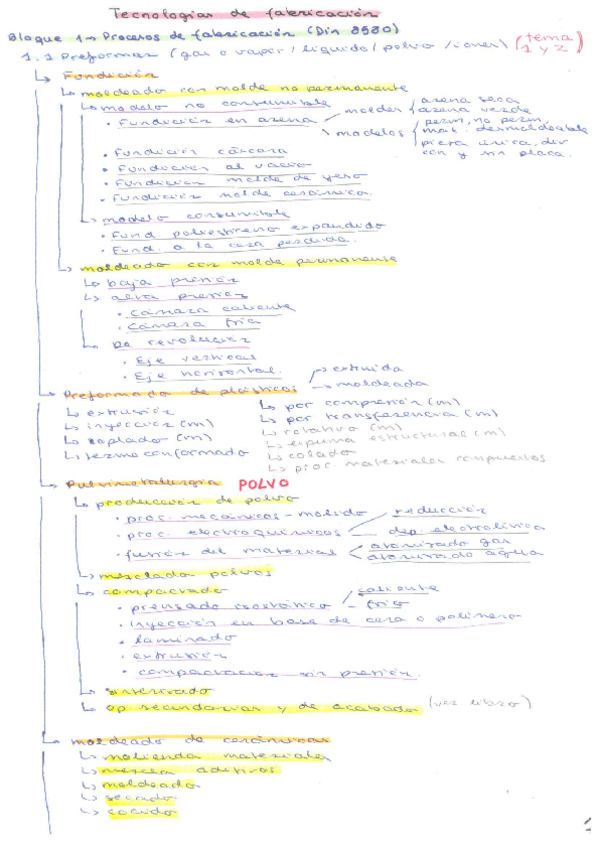 Tecnologías de fabricación
Bloque 1→ Procesos de fabricación (Din 8580)
1.1 Preformas (gas o vapor / líquido / polvo / iones) (tema 1 y 2)
↳ Fundición
↳ moldeado con molde no permanente
↳ modelo no consumible
• Fundición en arena
moldes
arena seca
arena verde
modelos
perm, no perm,
mat. desmoldeable
pieza única, div
con y sin placa.
• Fundición cáscara
• Fundición al vacío
• Fundición molde de yeso
• Fundición molde cerámica.
↳ modelo consumible
• Fund poliestireno expandido
• Fund. a la cera perdida.
↳ moldeado con molde permanente
↳ baja presión
↳ alta presión
• cámara caliente
• cámara fría
↳ De revolución
• Eje vertical
• Eje horizontal.
↳ Preformado de plásticos
extruida
moldeada
↳ extrusión
↳ inyección (m)
↳ soplador (m)
↳ termoconformado
↳ por compresión (m)
↳ por transferencia (m)
↳ rotativo (m)
↳ espuma estructural (m)
↳ colado
↳ proc. materiales compuestos
↳ Pulvimetalurgia POLVO
↳ producción de polvo
• proc. mecánicos - molido
• proc. electroquímicos
reducción
dep. electrolítica
• fusión del material
atomizado gas
atomizado agua
↳ mezclado polvos
↳ compactado
• prensado isostático
caliente
frío
• inyección en base de cera o polímero
• laminado
• extrusión
• compactación sin presión.
↳ sinterizado
↳ op secundarias y de acabado (ver libro)
↳ moldeado de cerámicas
↳ molienda materiales
↳ mezcla aditivos
↳ moldeado
↳ secado
↳ cocido
1